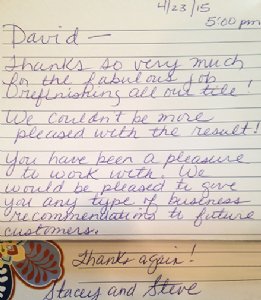 4/23/15
5:00 pm
David —
Thanks so very much
for the fabulous job
refinishing all our tile!
We couldn't be more
pleased with the result!
You have been a pleasure
to work with. We
would be pleased to give
you any type of business
recommendations to future
customers.
Thanks again!
Stacey and Steve